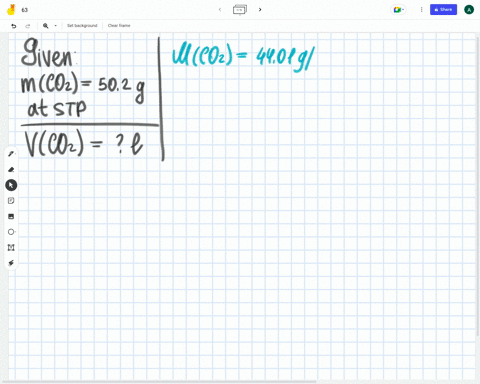 63
Share
A
Set background
Clear frame
Given:
m(CO₂) = 50.2 g
at STP
V(CO₂) = ? l
M(CO₂) = 44.01 g/